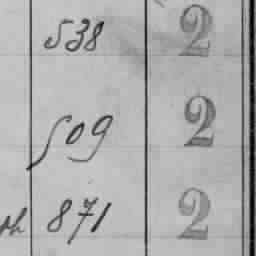 538 2
509 2
ph 871 2